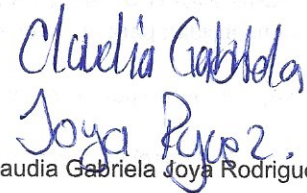 Claudia Gabriela
Joya Rguez.
audia Gabriela Joya Rodrigu